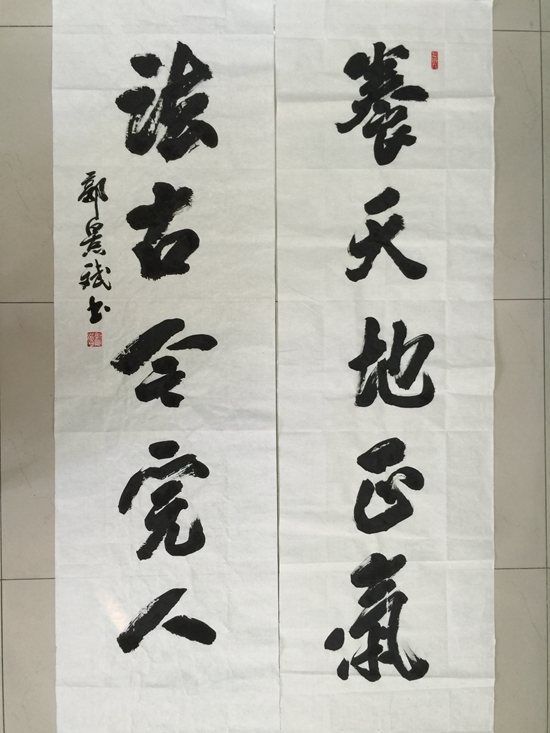 養天地正氣
法古今完人
郭景斌书